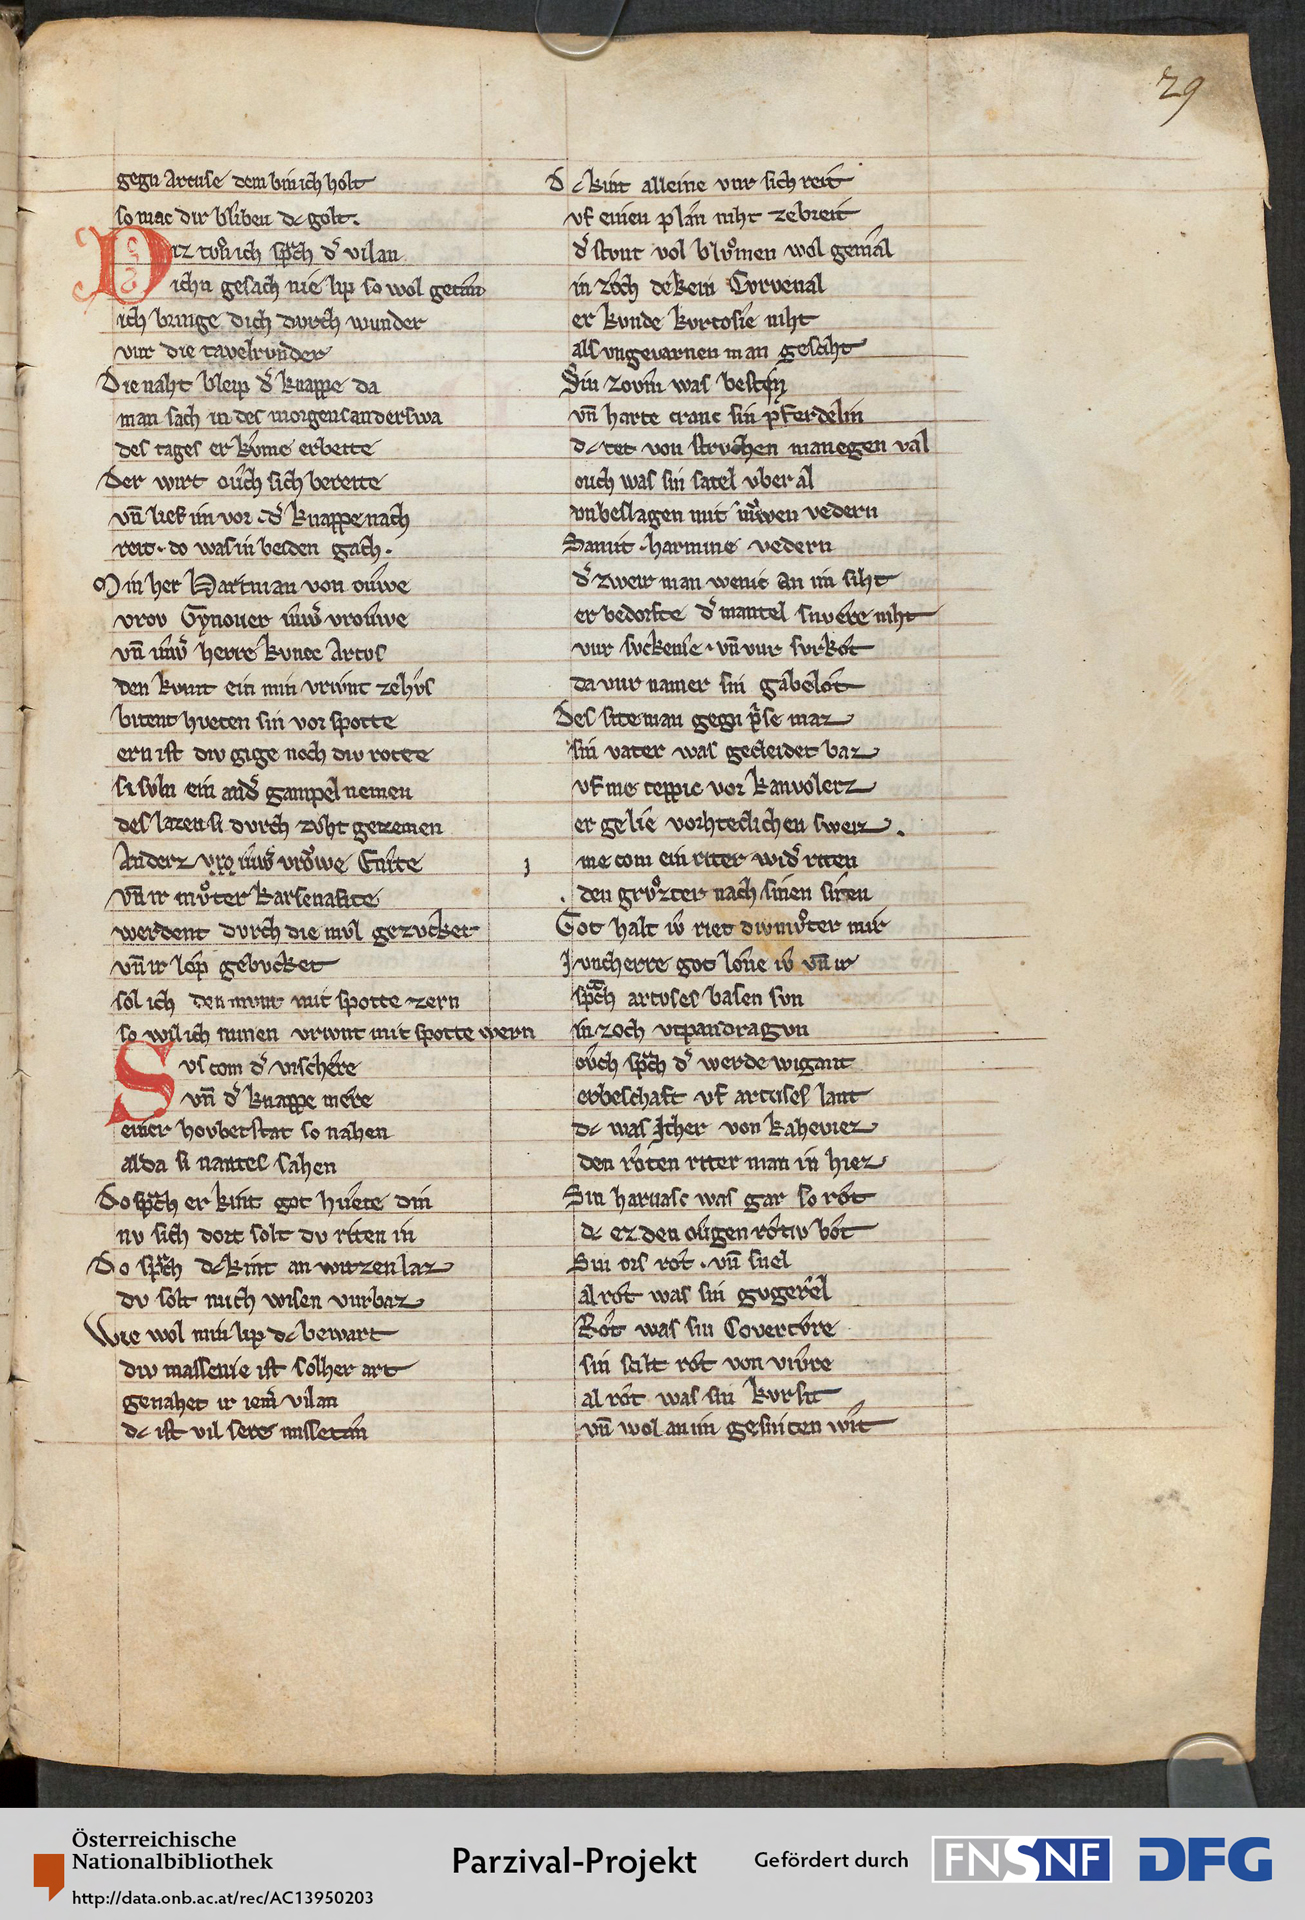 29
gegn Artuse dem bin ich holt
so mac dir bliben dc golt.
Diz tvͦn ich spͣch dˀ vilan
ichn gesach nie lip so wol getân
ich bringe dich dvrch wunder
vur die tavelrvnder
Die naht bleip dˀ knappe da
man sach in des morgens anderswa
des tages er kvme erbeite
Der wirt oͮch sich bereite
vn̄ lief im vor · dˀ knappe nach
reit · do was in beiden gach ·
Min her Hartman von oͮwe
vrov Gynover iwˀ vroͮwe
vn̄ iwˀ herre kvnec Artvs
den kvmt ein min vrivnt ze hvs
bitent hveten sin vor spotte
ern ist div gige noch div rotte
si svln ein andˀ gampel nemen
des lazen si dvrch zvht gezemen
Anderz vro iwˀ vroͮwe Enite
vn̄ ir mvͦter karsenafite
werdent dvrch die mvl gezvcket
vn̄ ir lop gebvcket
sol ich den mvnt mit spotte zern
so wil ich minen vrivnt mit spotte wern
Svs com dˀ vischêre
vn̄ dˀ knappe mêre
einer hovbetstat so nahen
alda si nantes sahen
Do spͣch er kint got hvete din
nv sich dort solt dv riten in
Do spͣch dc kint an witzen laz
dv solt mich wisen vurbaz
Wie wol min lip dc bewart
div massenie ist solher art
genahet ir iemˀ vilan
dc ist vil sere missetân
Dc kint alleine vur sich reit
vf einen plân niht ze breit
dˀ stvnt vol blvͦmen wol gemâl
in zôch dekein Cvrvenal
er kvnde kvrtosie niht
als vngevarnen man gesciht
Sin zovm was bestin
vn̄ harte cranc sin pferdelin
dc tet von strvchen manegen val
ouch was sin satel vber âl
vnbeslagen mit nivwen ledern
Samit · harmine vedern
dˀ zweir man wenic an im siht
er bedorfte dˀ mantel snvere niht
vur svckenie · vn̄ vur svrkôt
da vur namer sin gâbelôt
Des site man gegn prˀse maz
sin vater was gecleidet baz
vf me teppic vor kanvolerz
er gelie vorhteclichen sweiz .
me com ein riter widˀ riten
den grvͦzter nach sinen siten
Got halt iv̂ riet div mvͦter mir
Jvncherre got lône iv̂ vn̄ ir
spͣch artvses basen svn
in zoch vtpandragvn
ovch spͣch dˀ werde wigant
erbeschaft vf artuses lant
dc was Jther von kaheviez
den rôten riter man in hiez
Sin harnasc was gar so rôt
dc ez den ovgen rôtiv bôt
Sin ors rôt · vn̄ snel
al rôt was sin gvgerêl
Rôt was sin Covertvre
sin scilt rôt von vivre
al rôt was sin kvrsit
vn̄ wol an im gesniten wît
Österreichische
Nationalbibliothek
http://data.onb.ac.at/rec/AC13950203
Parzival-Projekt
Gefördert durch
FNSNF
DFG